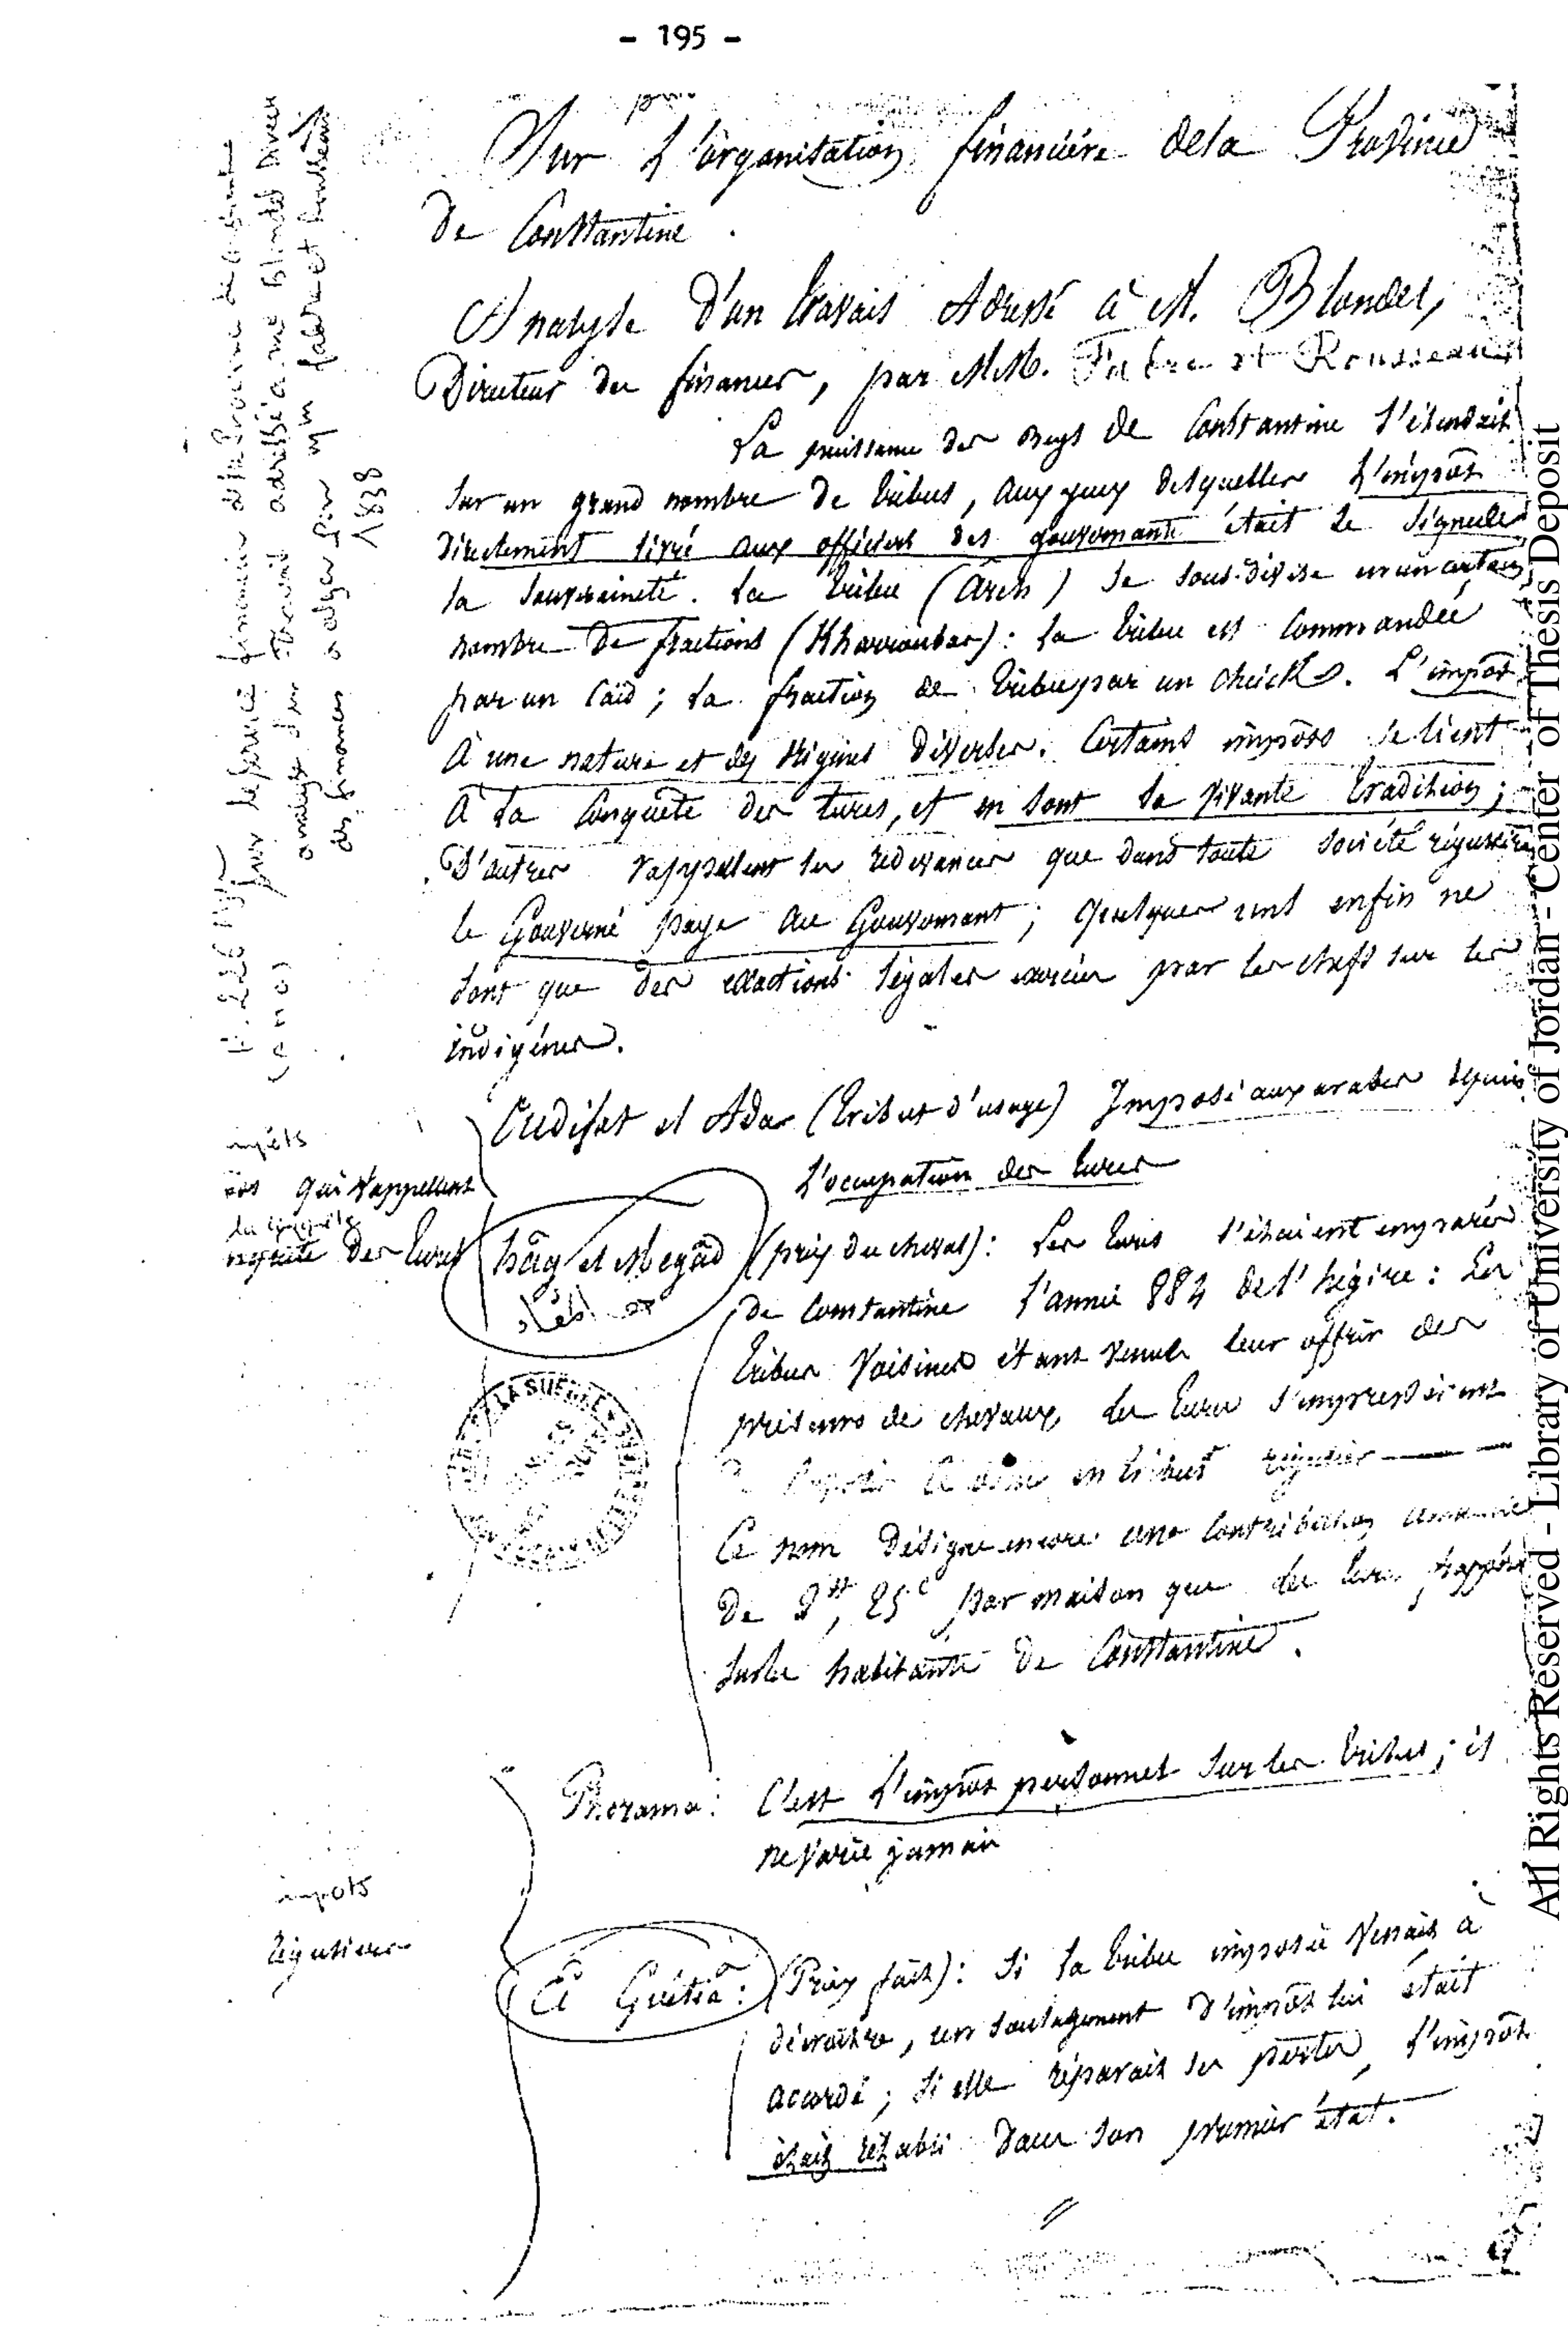 - 195 -
Sur l'organisation financière de la Province
de Constantine.
Analyse d'un travail adressé à M. Blondel,
Directeur des finances, par MM. Fabre et Rousseau
La puissance des Beys de Constantine s'étendait
sur un grand nombre de tribus, aux yeux desquelles l'impôt
directement livré aux officiers des gouvernants était le signe de
la souveraineté. La tribu (Arch) se sous-divise en un certain
nombre de fractions (Kharroubas): la tribu est commandée
par un Caïd; la fraction de tribu par un cheick. L'impôt
à une nature et des origines diverses. Certains impôts se lient
à la conquête des turcs, et en sont la vivante tradition;
D'autres rappellent les redevances que dans toute société régulière
le Gouverné paye au Gouvernant; quelques uns enfin ne
sont que des exactions légales exercées par les chefs sur les
indigènes.
et Ada (tribut d'usage) Imposé aux arabes depuis
L'occupation des turcs
impôts
qui rappellent
la conquête
des turcs
hâq el Megâd (prix du cheval): Les turcs s'étaient emparés
de Constantine l'année 884 de l'hégire: Les
tribus voisines étant venues leur offrir des
présents de chevaux, les turcs s'empressèrent
en tribut régulier
Ce nom désigne encore une contribution
de 2ff, 25c par maison que les turcs
sur les habitants de Constantine.
C'est l'impôt personnel sur les tribus; il
ne varie jamais
impots
réguliers
El Guétia: (Prix fait): Si la tribu imposée venait à
décroître, un soulagement d'impôt lui était
accordé; si elle réparait ses pertes, l'impôt
était rétabli dans son premier état.
1838
All Rights Reserved - Library of University of Jordan - Center of Thesis Deposit